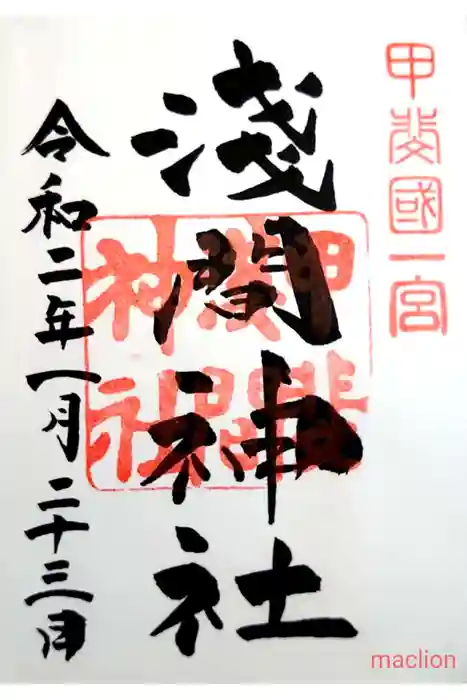 甲斐國一宮
淺間神社
甲斐
淺間
神社
令和二年一月二十三日
maclion